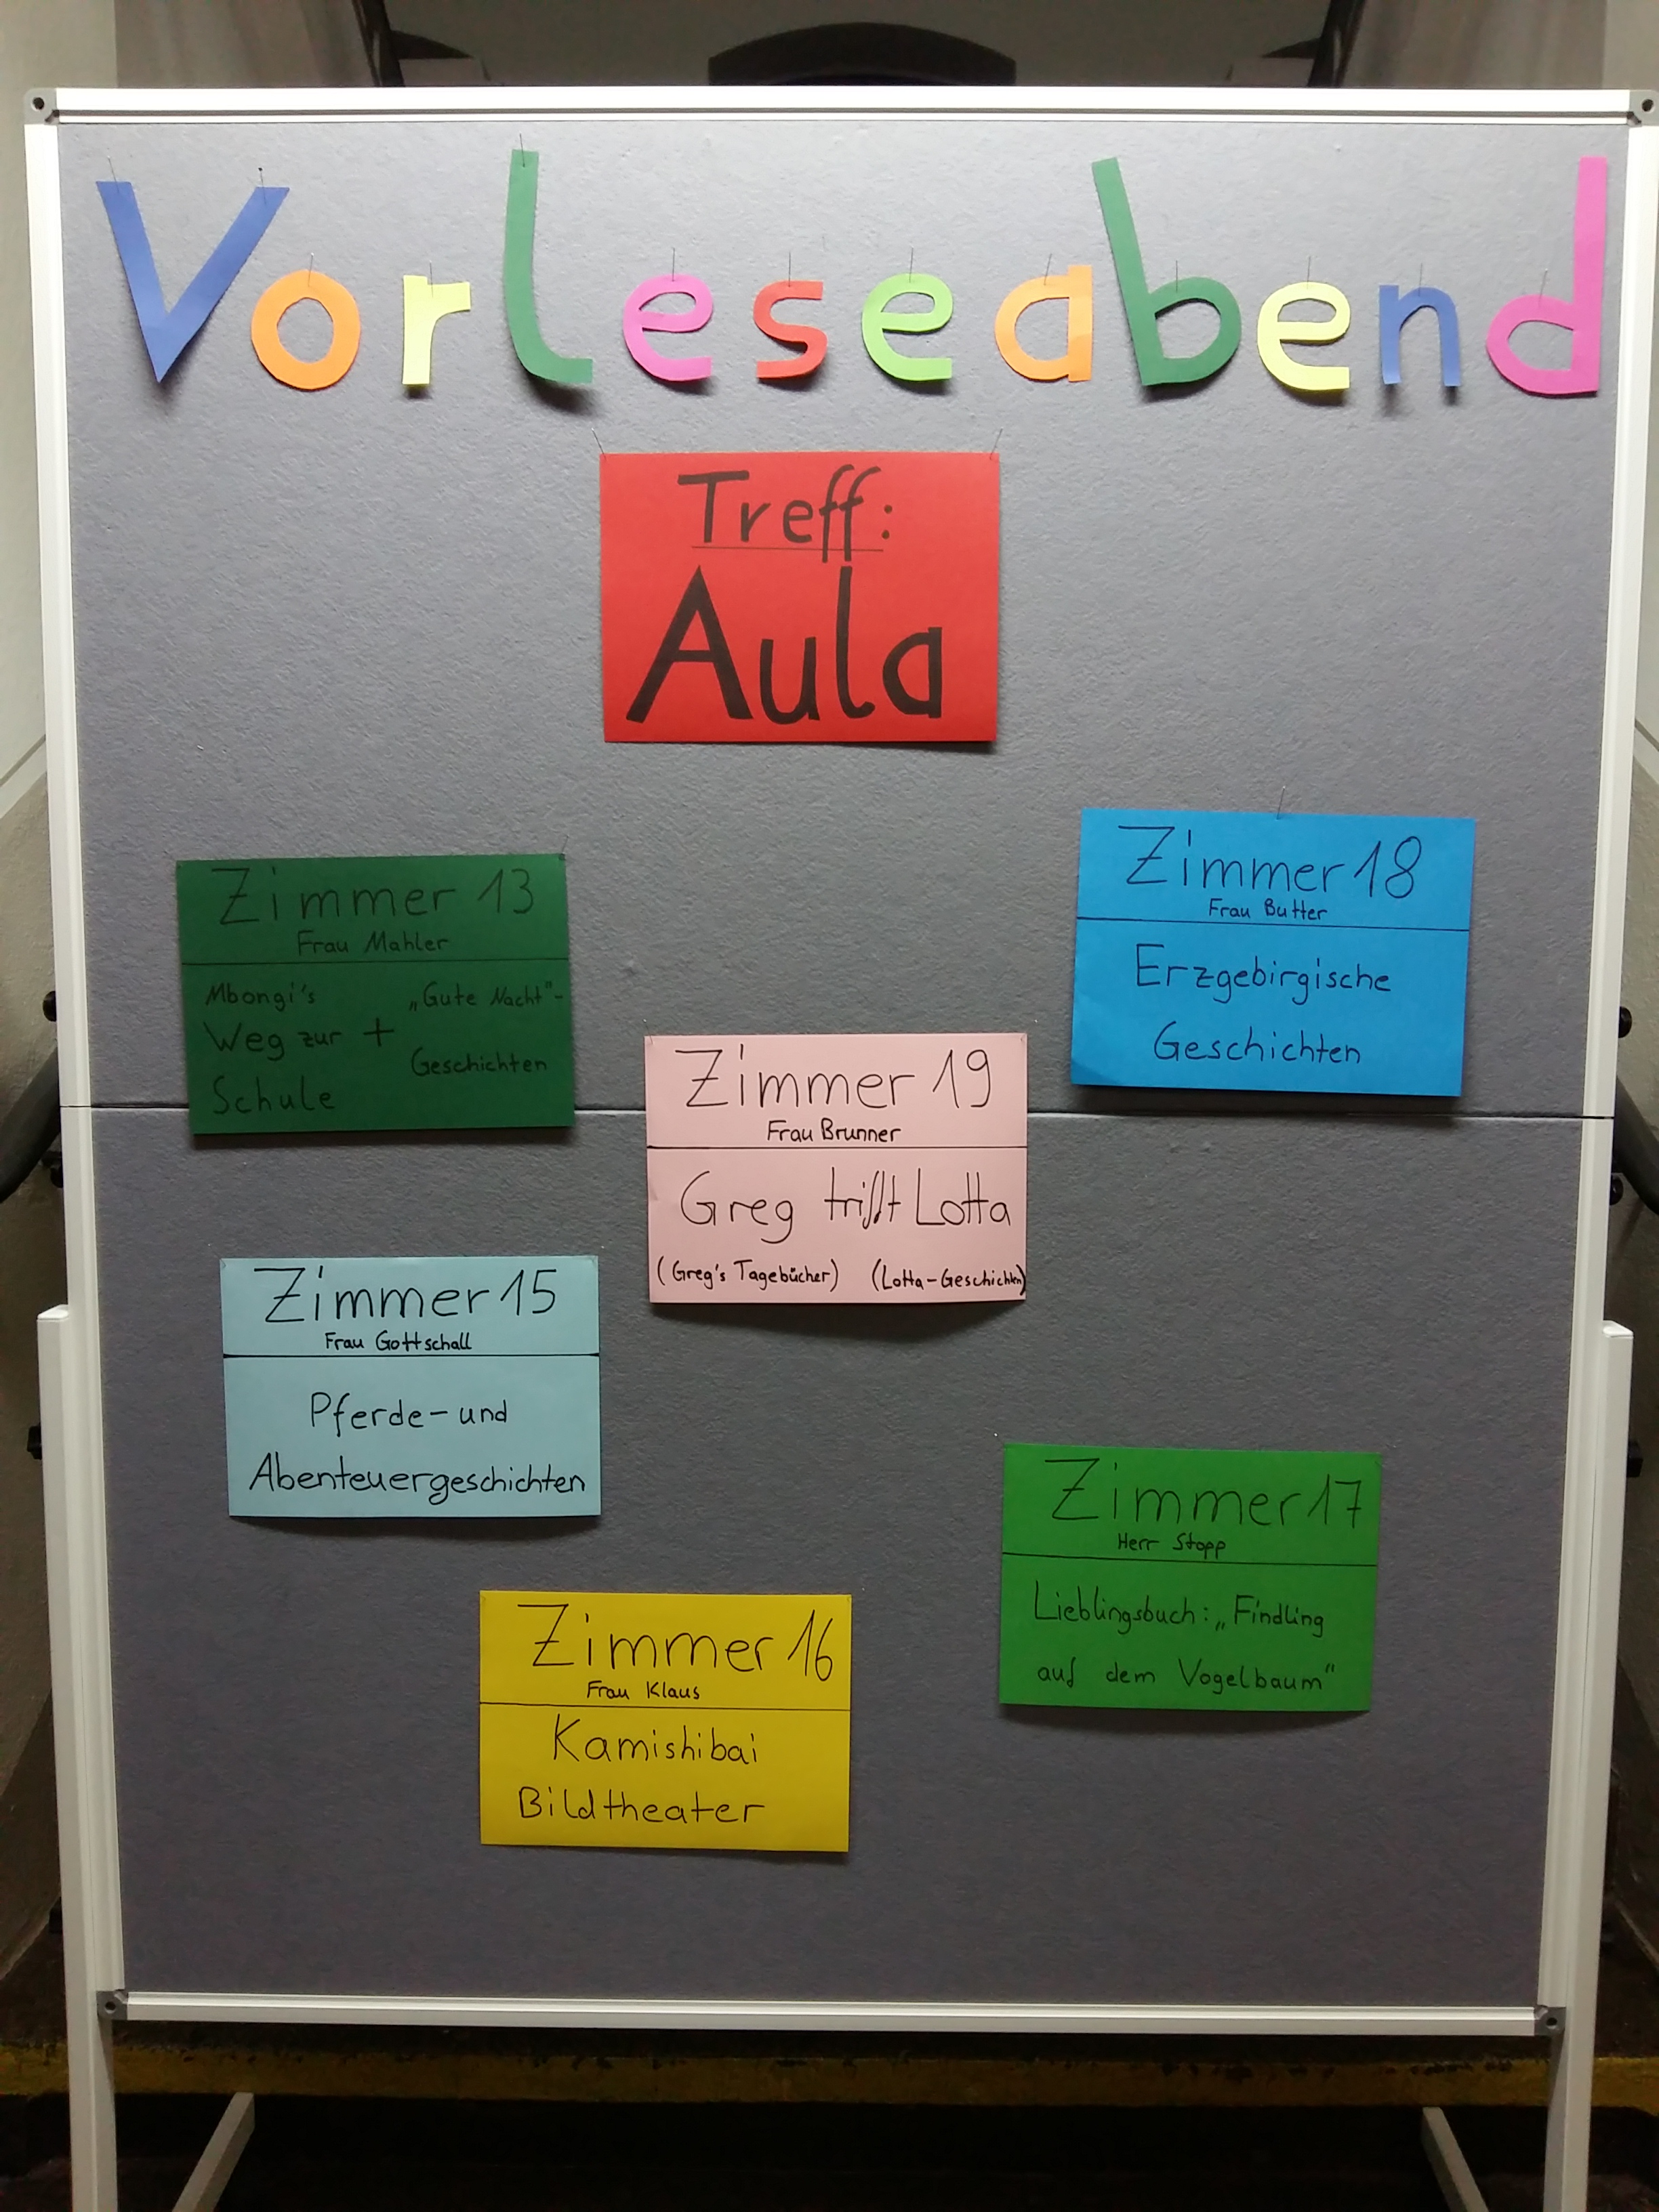 Vorleseabend
Treff:
Aula
Zimmer 13
Frau Mahler
Mbongi's
Weg zur
Schule
+
„Gute Nacht"-
Geschichten
Zimmer 18
Frau Butter
Erzgebirgische
Geschichten
Zimmer 19
Frau Brunner
Greg trifft Lotta
(Greg's Tagebücher) (Lotta-Geschichten)
Zimmer 15
Frau Gottschall
Pferde- und
Abenteuergeschichten
Zimmer 17
Herr Stopp
Lieblingsbuch: „Findling
auf dem Vogelbaum"
Zimmer 16
Frau Klaus
Kamishibai
Bildtheater